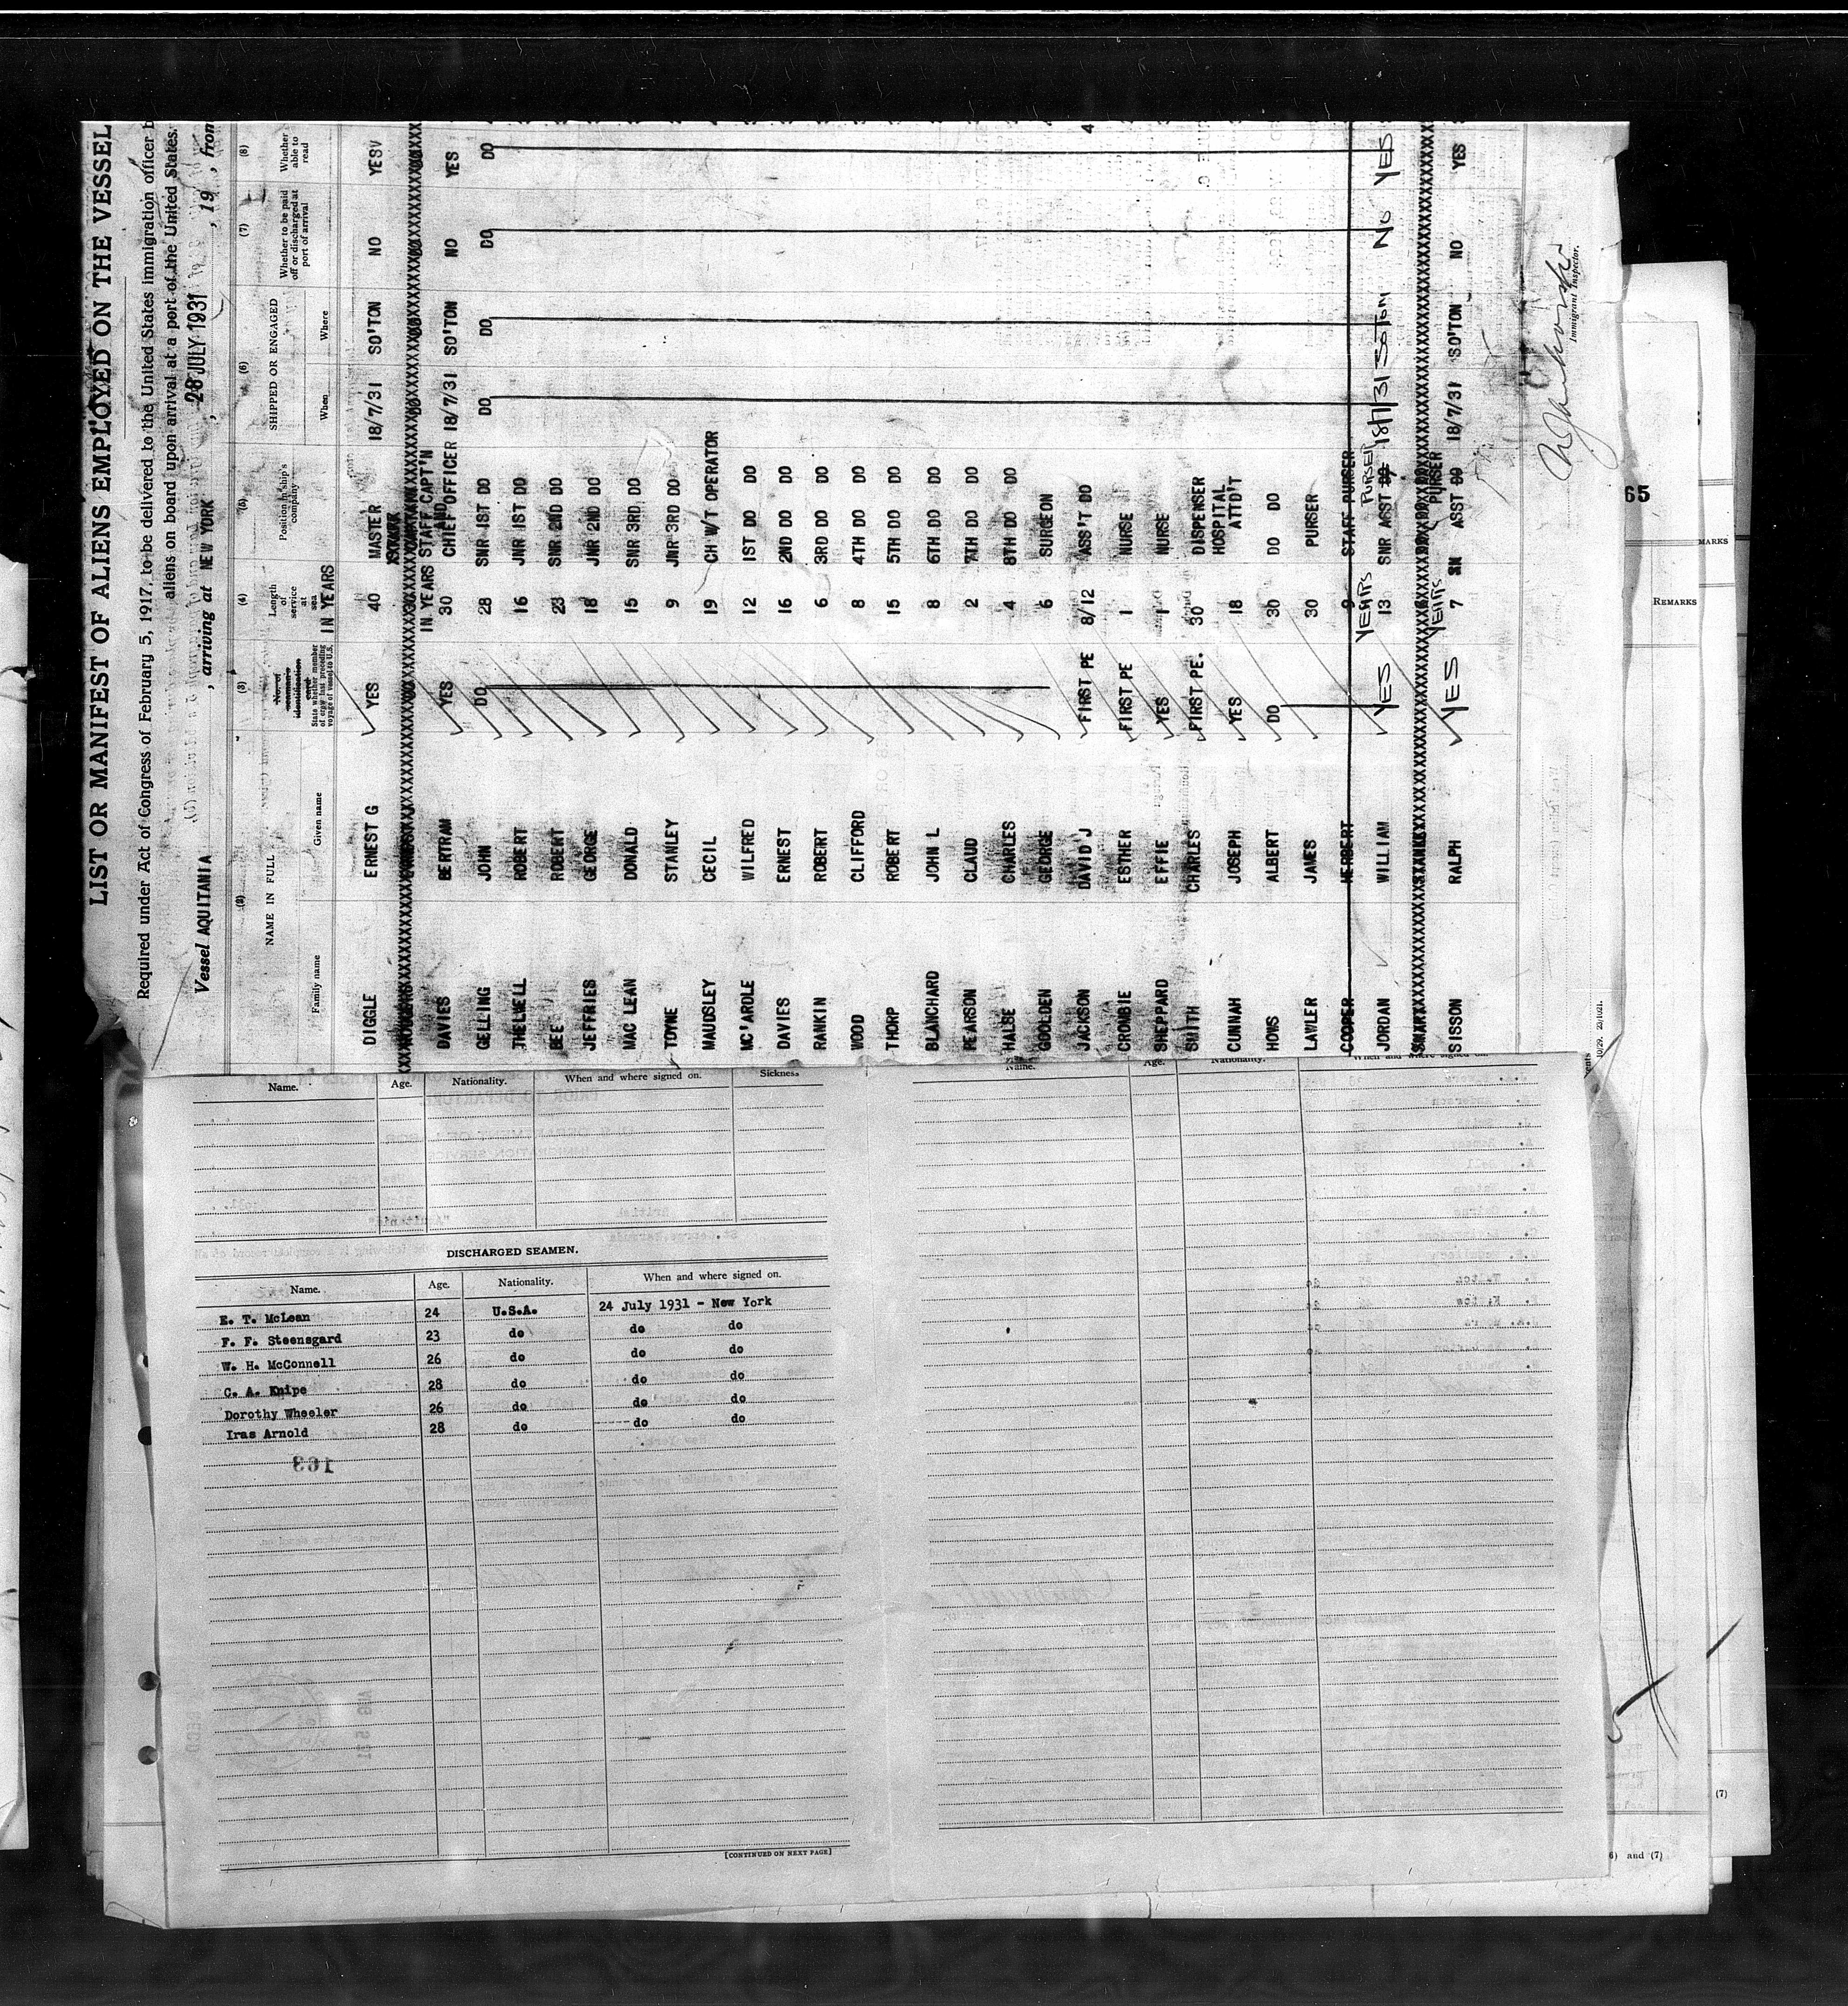 LIST OR MANIFEST OF ALIENS EMPLOYED ON THE VESSEL
Required under Act of Congress of February 5, 1917, to be delivered to the United States immigration officer b
aliens on board upon arrival at a port of the United States.
Vessel AQUITANIA , arriving at NEW YORK , 28 JULY 1931 , 19 , from
(2) (3) (4) (5) (6) (7) (8)
NAME IN FULL
Family name Given name
No. of seaman's identification card
State whether member of crew last preceding voyage of vessel to U.S.
Length of service at sea
IN YEARS
Position in ship's company
SHIPPED OR ENGAGED
When Where
Whether to be paid off or discharged at port of arrival
Whether able to read
DIGGLE ERNEST G YES 40 MASTER 18/7/31 SO'TON NO YES
IN YEARS STAFF CAPT'N
AND
DAVIES BERTRAM YES 30 CHIEF OFFICER 18/7/31 SO'TON NO YES
GELLING JOHN DO 28 SNR 1ST DO DO DO DO DO
THELWELL ROBERT 16 JNR 1ST DO
BEE ROBERT 23 SNR 2ND DO
JEFFRIES GEORGE 18 JNR 2ND DO
MAC LEAN DONALD 15 SNR 3RD DO
TOYNE STANLEY 9 JNR 3RD DO
MAUDSLEY CECIL 19 CH W/T OPERATOR
MC'ARDLE WILFRED 12 1ST DO DO
DAVIES ERNEST 16 2ND DO DO
RANKIN ROBERT 6 3RD DO DO
WOOD CLIFFORD 8 4TH DO DO
THORP ROBERT 15 5TH DO DO
BLANCHARD JOHN L 8 6TH DO DO
PEARSON CLAUD 2 7TH DO DO
HALSE CHARLES 4 8TH DO DO
GOOLDEN GEORGE 6 SURGEON
JACKSON DAVID J FIRST PE 8/12 ASS'T DO 4
CROMBIE ESTHER FIRST PE 1 NURSE
SHEPPARD EFFIE YES 1 NURSE
SMITH CHARLES FIRST PE. 30 DISPENSER
HOSPITAL
CUNNAH JOSEPH YES 18 ATTD'T
HOWS ALBERT DO 30 DO DO
LAWLER JAMES 30 PURSER
COOPER HERBERT 9 STAFF PURSER
YEARS PURSER
JORDAN WILLIAM YES 13 SNR ASST DO 18/7/31 SOTON NO YES
YEARS PURSER
SISSON RALPH YES 7 ASST DO 18/7/31 SO'TON NO YES
Immigrant Inspector.
65
MARKS
REMARKS
Name. Age. Nationality. When and where signed on. Sickness
Name. Age. Nationality. When and where signed on.
DISCHARGED SEAMEN.
Name. Age. Nationality. When and where signed on.
E. T. McLean 24 U.S.A. 24 July 1931 - New York
F. F. Steensgard 23 do do do
W. H. McConnell 26 do do do
C. A. Knipe 28 do do do
Dorothy Wheeler 26 do do do
Iras Arnold 28 do do do
163
[CONTINUED ON NEXT PAGE]
(7)
6) and (7)